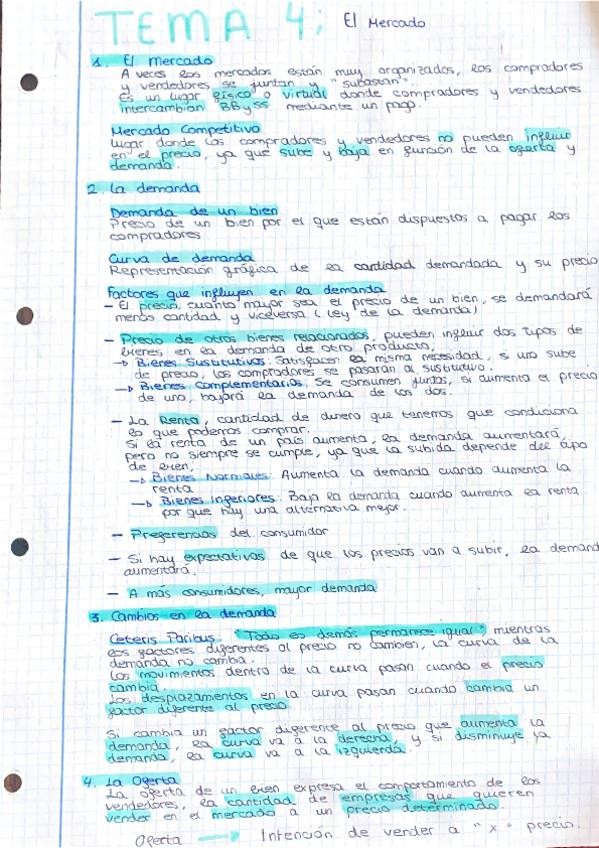 TEMA 4: El Mercado
1. El mercado
A veces los mercados están muy organizados, los compradores
y vendedores se juntan y "subastan".
Es un lugar físico o virtual donde compradores y vendedores
intercambian BByss mediante un pago.
Mercado Competitivo
Lugar donde los compradores y vendedores no pueden influir
en el precio, ya que sube y baja en función de la oferta y
demanda.
2. La demanda
Demanda de un bien
Precio de un bien por el que están dispuestos a pagar los
compradores
Curva de demanda
Representación gráfica de la cantidad demandada y su precio
Factores que influyen en la demanda
- El precio, cuanto mayor sea el precio de un bien, se demandará
menos cantidad y viceversa (Ley de la demanda)
- Precio de otros bienes relacionados, pueden influir dos tipos de
bienes en la demanda de otro producto,
→ Bienes Sustitutivos: Satisfacen la misma necesidad, si uno sube
de precio, los compradores se pasarán al sustitutivo.
→ Bienes Complementarios. Se consumen juntas, si aumenta el precio
de uno, bajará la demanda de los dos.
- La Renta, cantidad de dinero que tenemos que condiciona
lo que podemos comprar.
Si la renta de un país aumenta, la demanda aumentará,
pero no siempre se cumple, ya que la subida depende del tipo
de bien.
→ Bienes Normales: Aumenta la demanda cuando aumenta la
renta
→ Bienes inferiores: Baja la demanda cuando aumenta la renta
por que hay una alternativa mejor.
- Preferencias del consumidor
- Si hay expectativas de que los precios van a subir, la demand
aumentará.
- A más consumidores, mayor demanda
3. Cambios en la demanda
Ceteris Paribus. "Todo lo demás permanece igual" mientras
los factores diferentes al precio no cambien, la curva de la
demanda no cambia.
Los movimientos dentro de la curva pasan cuando el precio
cambia.
Los desplazamientos en la curva pasan cuando cambia un
factor diferente al precio.
Si cambia un factor diferente al precio que aumenta la
demanda, la curva va a la derecha, y si disminuye la
demanda, la curva va a la izquierda.
4. La Oferta
La oferta de un bien expresa el comportamiento de los
vendedores, la cantidad de empresas que quieren
vender en el mercado a un precio determinado.
Oferta → Intención de vender a "x" precio.